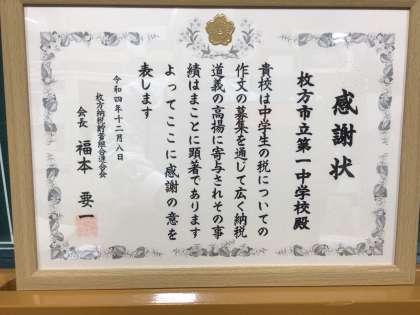 感謝状
枚方市立第一中学校殿
貴校は中学生の税についての
作文の募集を通じて広く納税
道義の高揚に寄与されその事
績はまことに顕著であります
よってここに感謝の意を
表します
令和四年十二月八日
枚方納税貯蓄組合連合会
会長 福本 要一